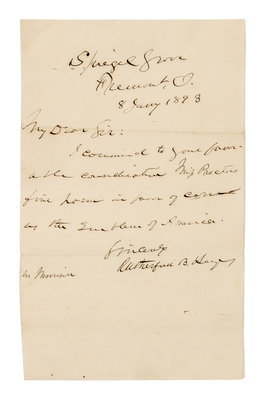 Spiegel Grove
Fremont, O.
8 Jany 1893
My Dear Sir:
I commend to your favor-
able consideration Miss Proctors
fine poem in favor of corn
as the Emblem of America.
Sincerely
Rutherford B. Hayes
Mr Morrison